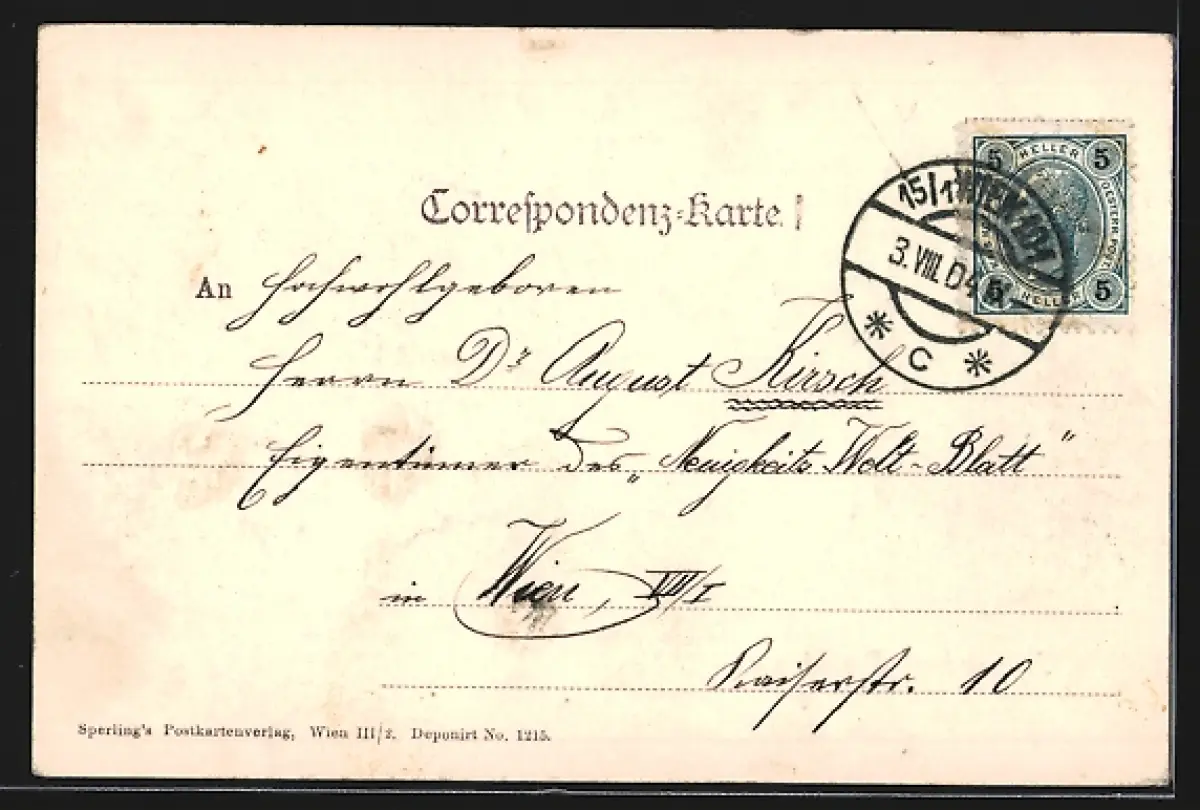 Correspondenz-Karte.
An Hochwohlgeboren
Herrn Dr August Kirsch
Eigentümer des „Neuigkeits Welt-Blatt"
in Wien, VII/I
Kaiserstr. 10
Sperling's Postkartenverlag, Wien III/2. Deponirt No. 1215.
5 HELLER 5
5 HELLER 5
OESTERR. POST
15/1 WIEN 101
3.VIII.04
* C *